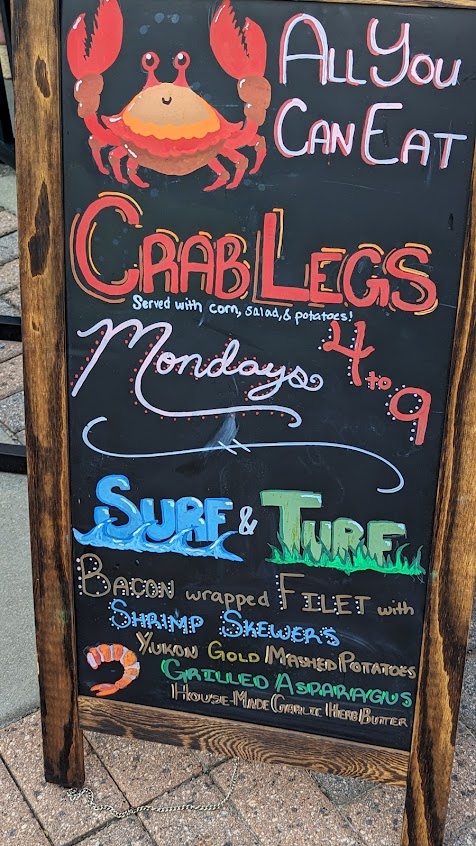 All You
Can Eat
Crab Legs
Served with corn, salad, & potatoes!
Mondays 4 to 9
Surf & Turf
Bacon wrapped Filet with
Shrimp Skewers
Yukon Gold Mashed Potatoes
Grilled Asparagus
House-Made Garlic Herb Butter